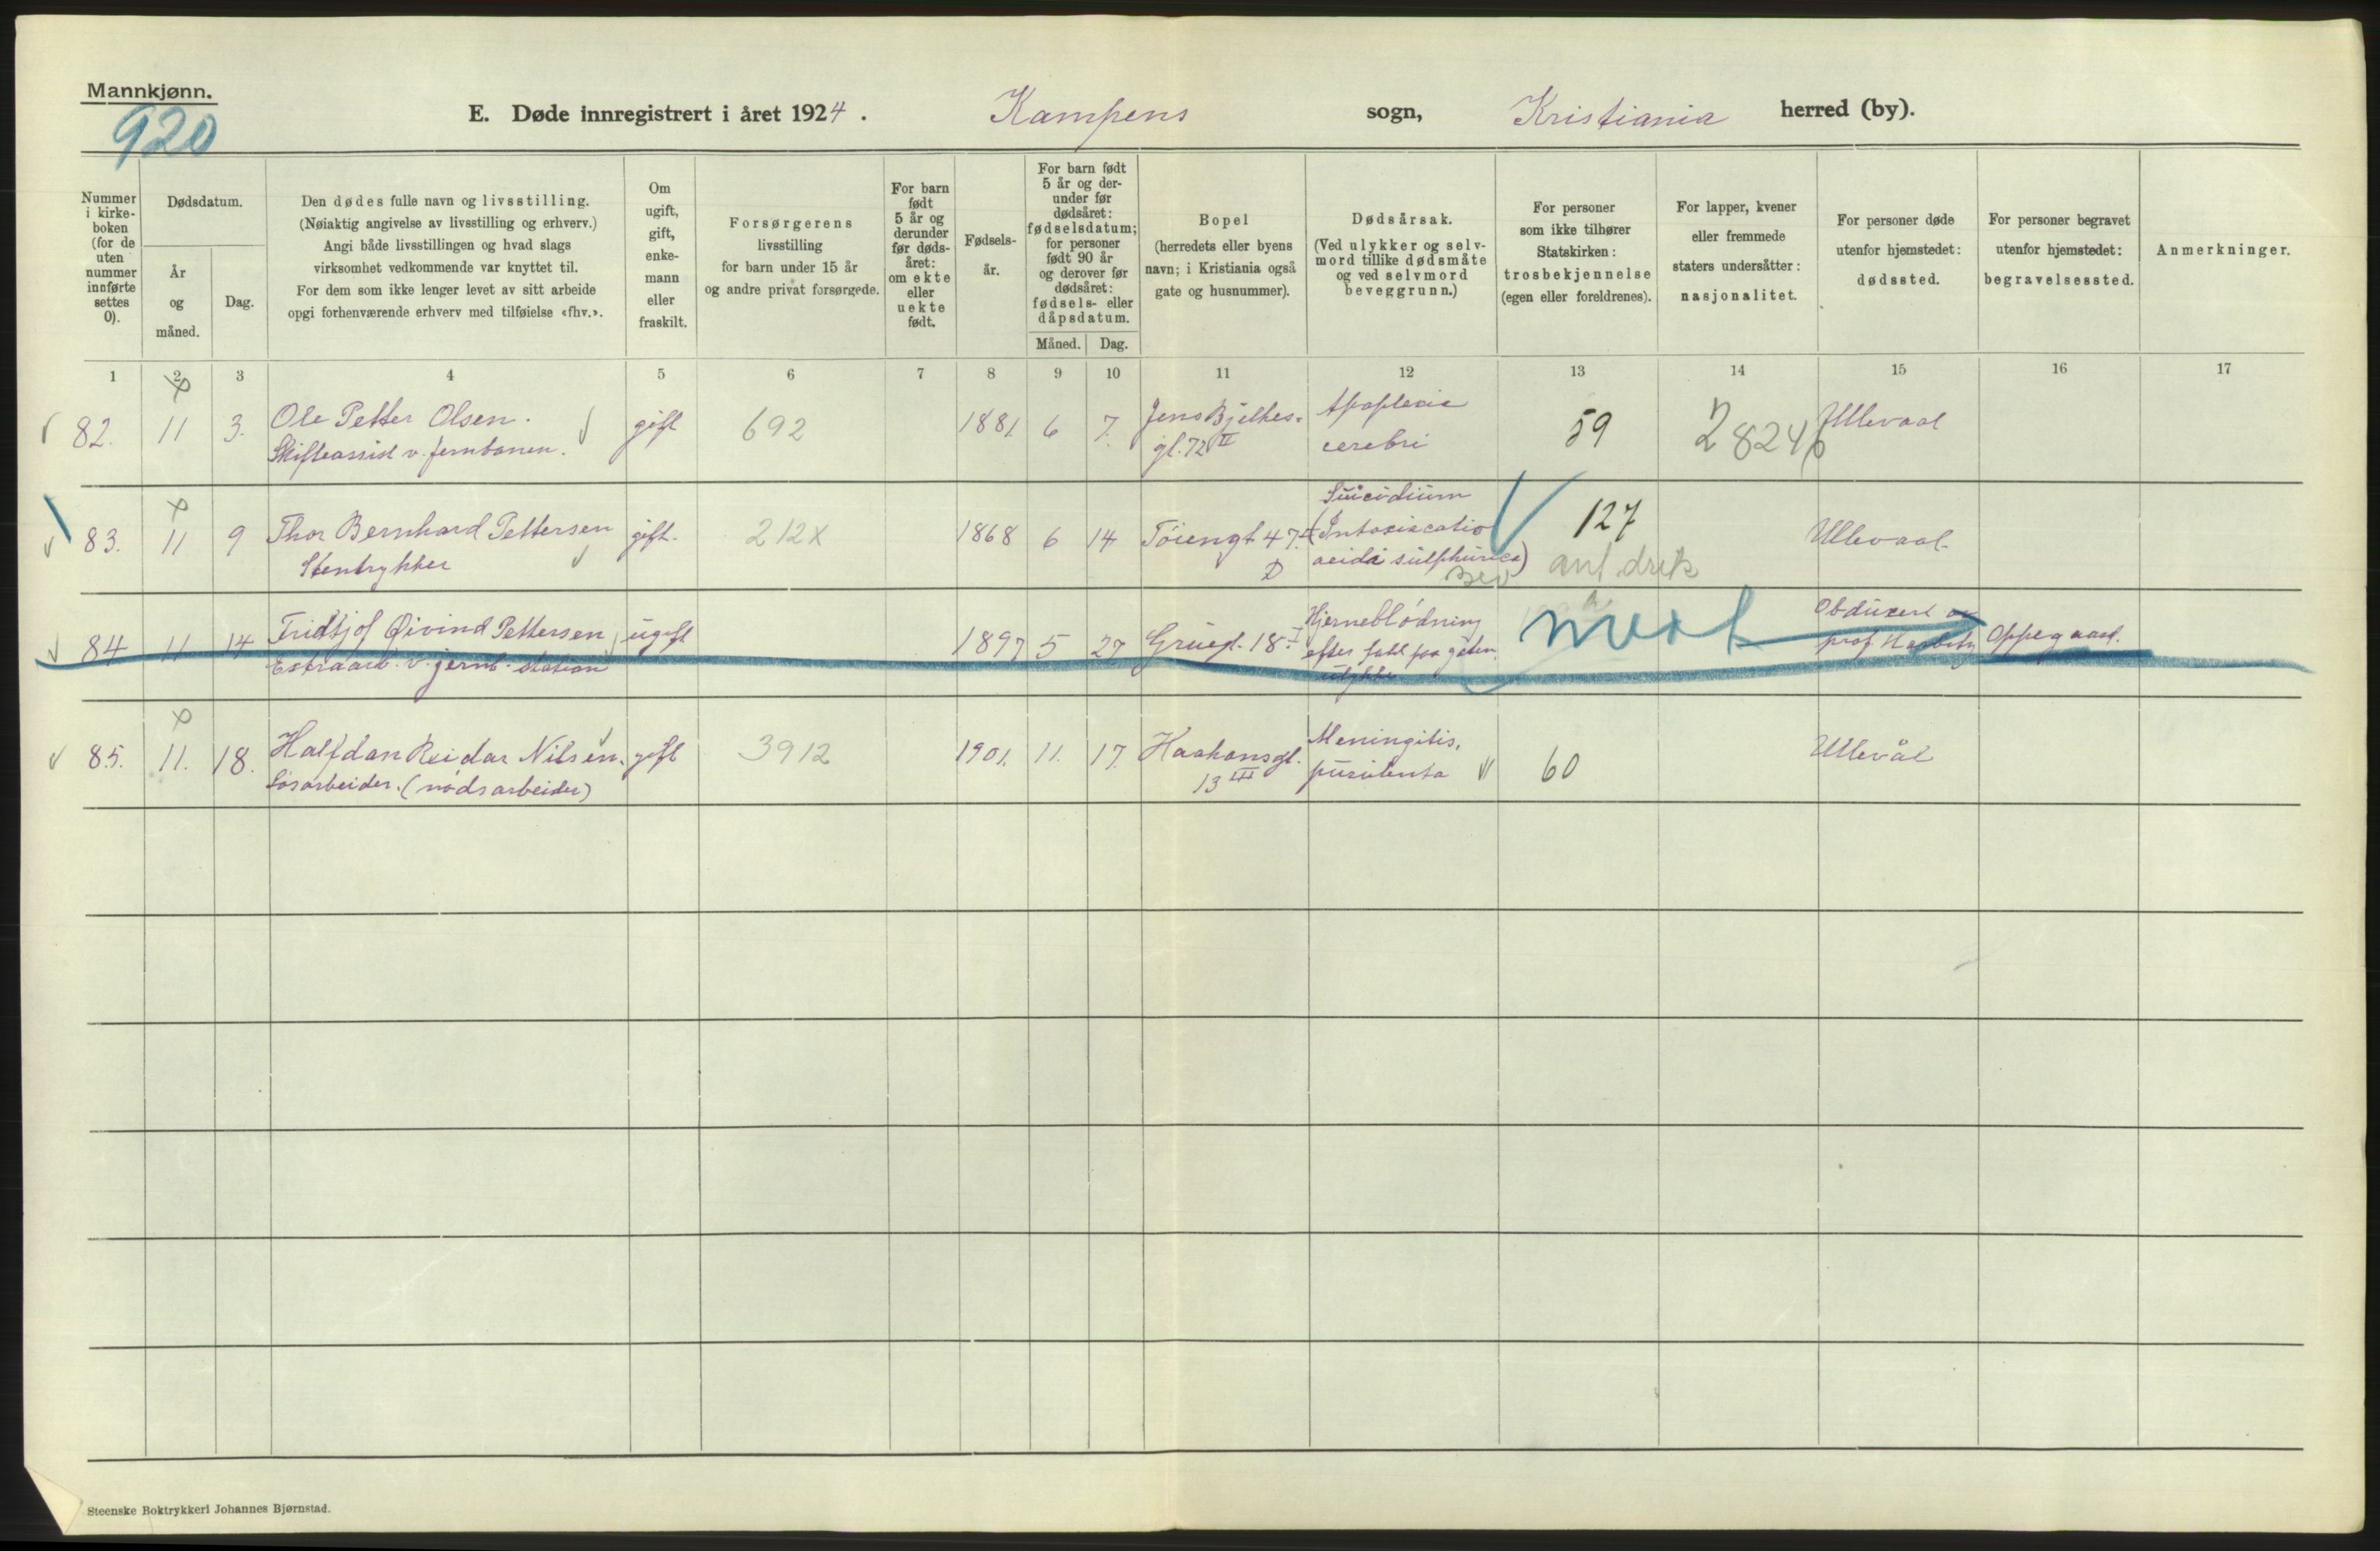 Mannkjønn.
920
E. Døde innregistrert i året 1924. Kampens sogn, Kristiania herred (by).
Nummer i kirke-boken (for de uten nummer innførte settes 0).
Dødsdatum.
År og måned.
Dag.
Den dødes fulle navn og livsstilling.
(Nøiaktig angivelse av livsstilling og erhverv.)
Angi både livsstillingen og hvad slags
virksomhet vedkommende var knyttet til.
For dem som ikke lenger levet av sitt arbeide
opgi forhenværende erhverv med tilføielse «fhv.».
Om ugift, gift, enke-mann eller fraskilt.
Forsørgerens
livsstilling
for barn under 15 år
og andre privat forsørgede.
For barn født 5 år og derunder før døds-året: om ekte eller uekte født.
Fødsels-år.
For barn født 5 år og der-under før dødsåret: fødselsdatum; for personer født 90 år og derover før dødsåret: fødsels- eller dåpsdatum.
Måned. Dag.
Bopel
(herredets eller byens
navn; i Kristiania også
gate og husnummer).
Dødsårsak.
(Ved ulykker og selv-
mord tillike dødsmåte
og ved selvmord
beveggrunn.)
For personer
som ikke tilhører
Statskirken:
trosbekjennelse
(egen eller foreldrenes).
For lapper, kvener
eller fremmede
staters undersåtter:
nasjonalitet.
For personer døde
utenfor hjemstedet:
dødssted.
For personer begravet
utenfor hjemstedet:
begravelsessted.
Anmerkninger.
1 2 3 4 5 6 7 8 9 10 11 12 13 14 15 16 17
82. 11 3. Ole Petter Olsen. gift 692 1881 6 7. Jens Bjelkes- Apoplexia 59 2824 Ullevaal
Skifteassist v. jernbanen. gt. 72 II cerebri
83. 11 9 Thor Bernhard Pettersen gift. 212x 1868 6 14 Töiengt 47 Suicidium 127 Ullevaal
Stentrykker (Intoxicatio
acida sulphurica)
84 11 14 Fridtjof Øivind Pettersen ugift 1897 5 27 Grüegt. 18 I Hjerneblödning Obducert av
Extraarb. v. jernb. station efter fald paa gaten. prof. Harbitz Oppegaard.
ulykke
85. 11. 18. Halfdan Reidar Nilsen. gift 3912 1901. 11. 17. Haakonsgt. Meningitis, 60 Ullevål
Løsarbeider. (nødsarbeider) 13 III purulenta
Steenske Boktrykkeri Johannes Bjørnstad.